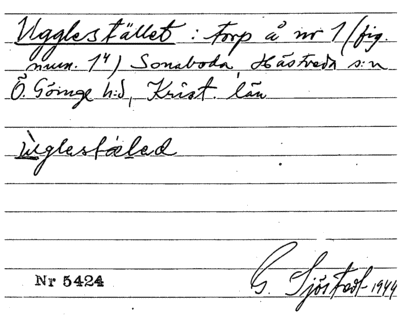 Ugglestället : torp å nr 1 (fig.
num. 1⁴) Sonaboda, Hästveda s:n
Ö. Göinge h:d, Krist. län
Ùglestæled
Nr 5424
G. Sjöstedt 1944